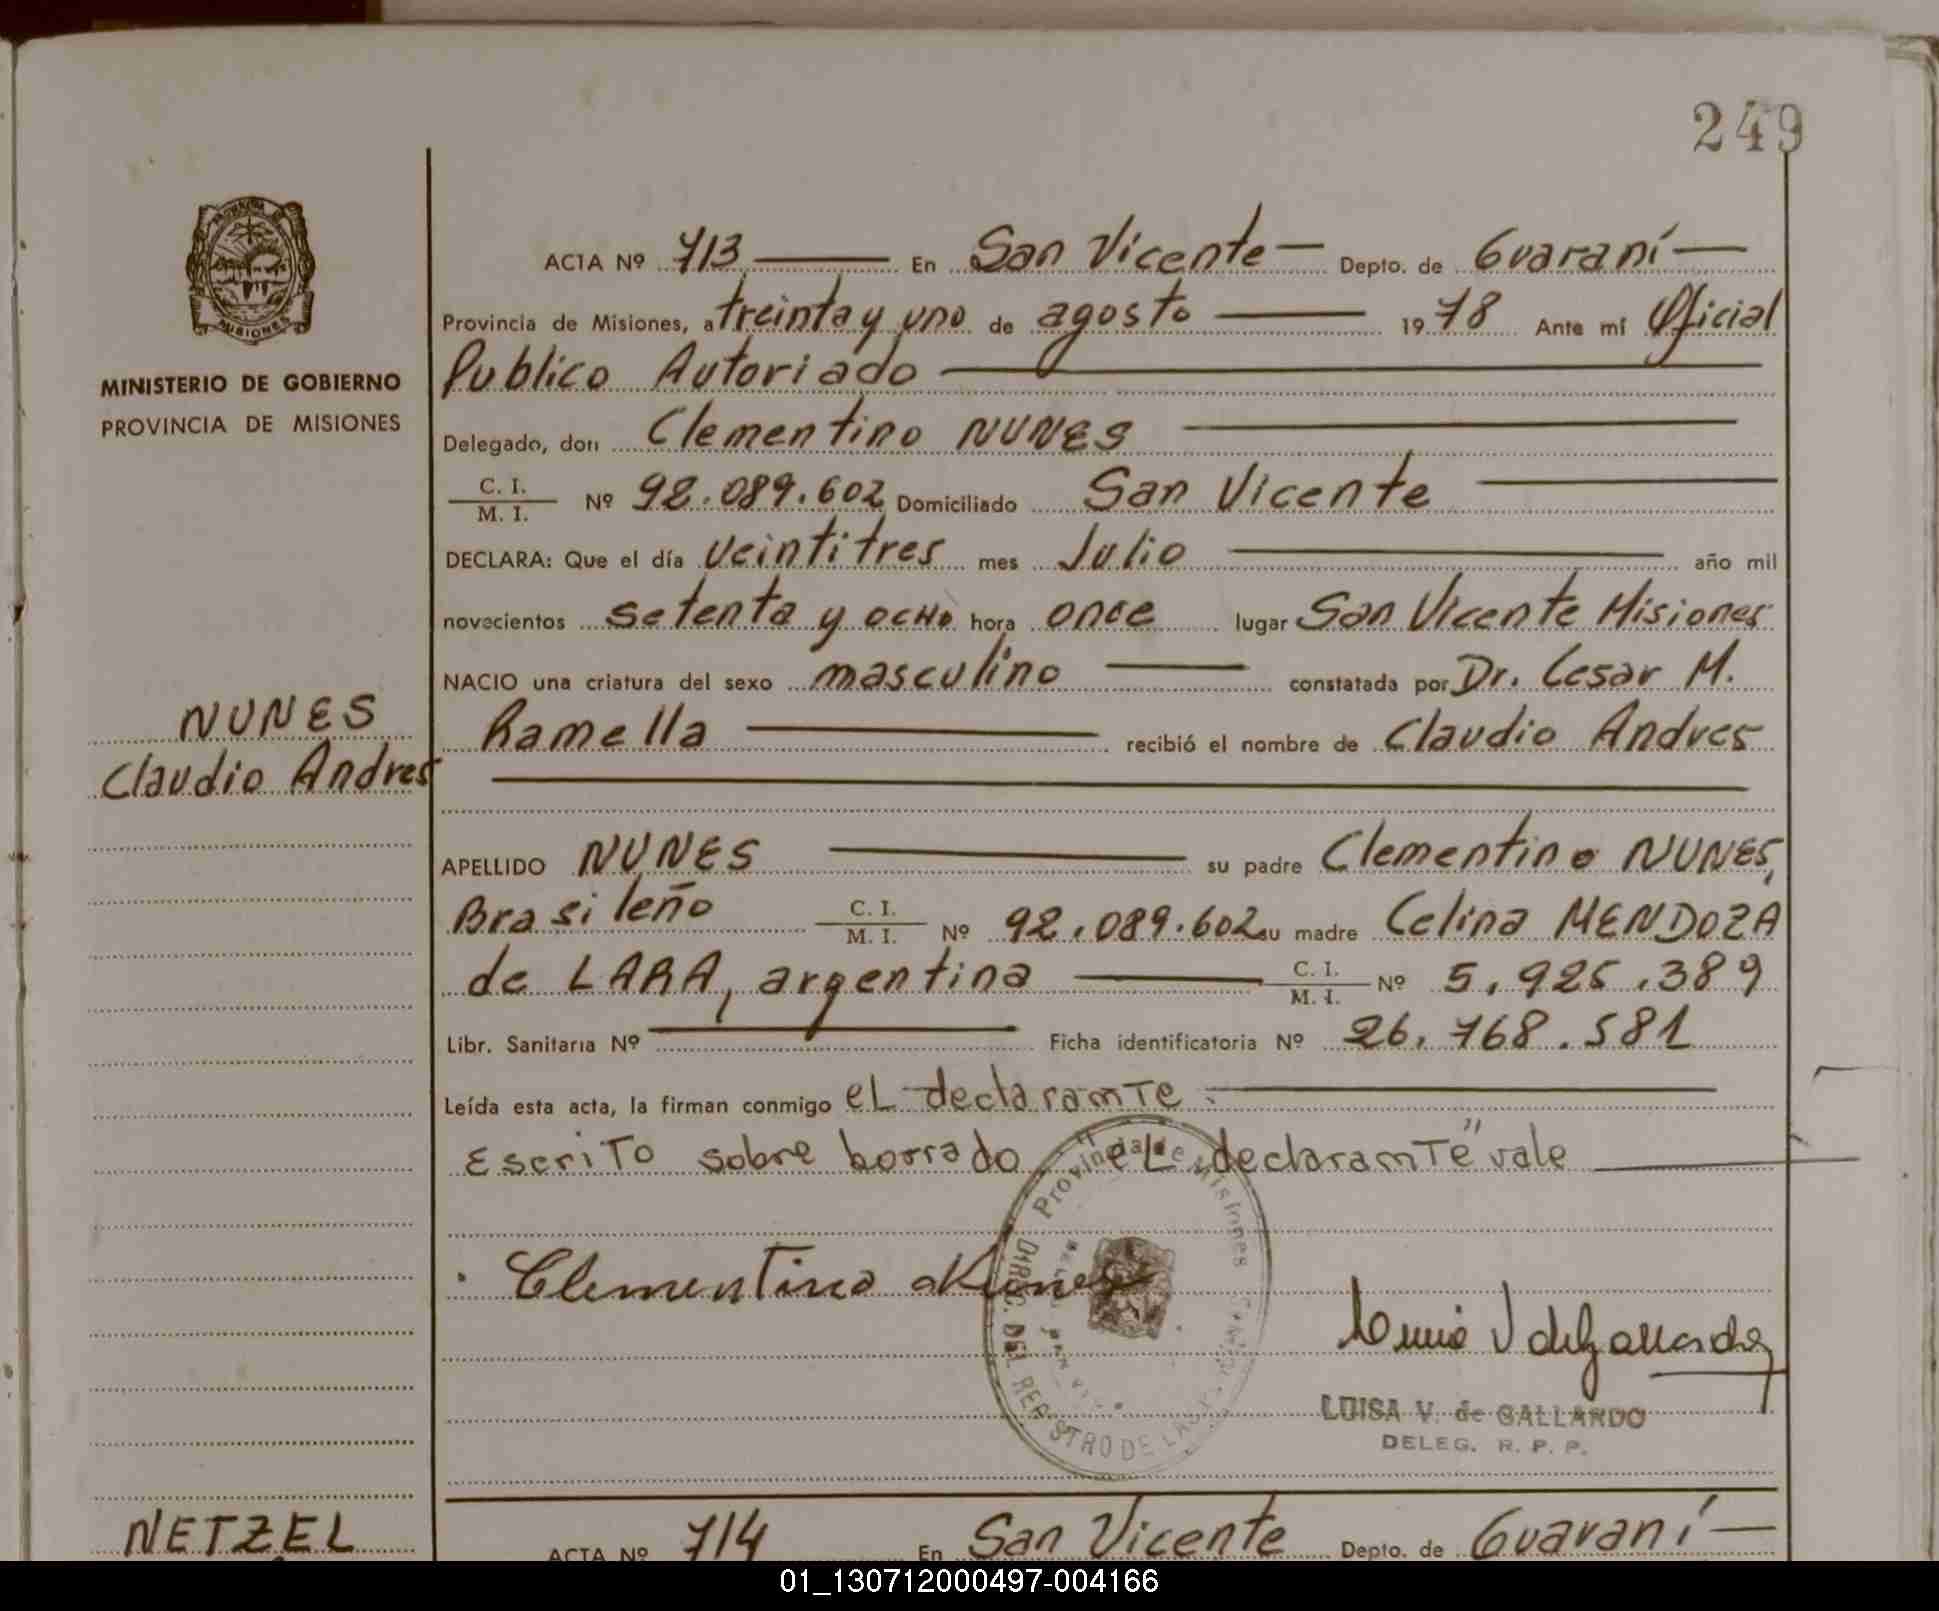 249
ACTA Nº 713 En San Vicente Depto. de Guaraní
Provincia de Misiones, a treinta y uno de agosto 19 78 Ante mí Oficial
Publico Autoriado
Delegado, don Clementino NUNES
C. I. / M. I. Nº 92.089.602 Domiciliado San Vicente
DECLARA: Que el día veintitres mes Julio año mil
novecientos setenta y ocho hora once lugar San Vicente Misiones
NACIO una criatura del sexo masculino constatada por Dr. Cesar M.
Ramella recibió el nombre de Claudio Andres
APELLIDO NUNES su padre Clementino NUNES,
Brasileño C. I. / M. I. Nº 92.089.602 su madre Celina MENDOZA
de LARA, argentina C. I. / M. I. Nº 5.925.389
Libr. Sanitaria Nº Ficha identificatoria Nº 26.768.581
Leída esta acta, la firman conmigo el declarante.
Escrito sobre borrado "el declarante" vale
Clementino Nunes
Provincia de Misiones
DIREC. DEL REGISTRO DE LAS
LUISA V. de GALLARDO
DELEG. R. P. P.
PROVINCIA DE
MISIONES
MINISTERIO DE GOBIERNO
PROVINCIA DE MISIONES
NUNES
Claudio Andres
NETZEL
ACTA Nº 714 En San Vicente Depto. de Guaraní
01_130712000497-004166